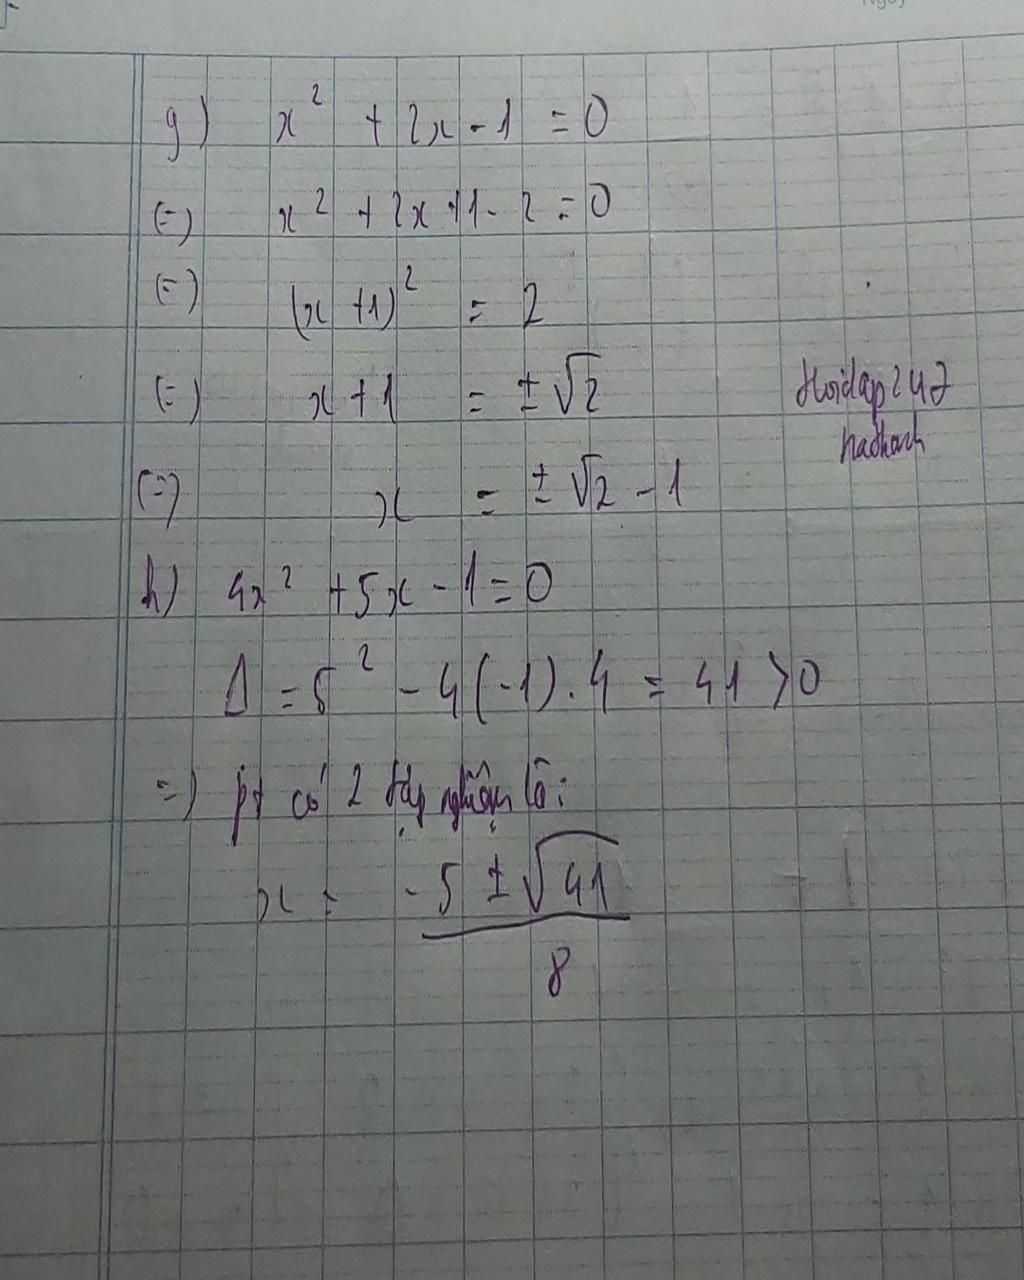 g) x² + 2x - 1 = 0
(=) x² + 2x + 1 - 2 = 0
(=) (x + 1)² = 2
(=) x + 1 = ± √2
(=) x = ± √2 - 1
Hoidap247
h) 4x² + 5x - 1 = 0
Δ = 5² - 4(-1).4 = 41 > 0
=) pt có 2 nghiệm là:
x = (-5 ± √41)/8